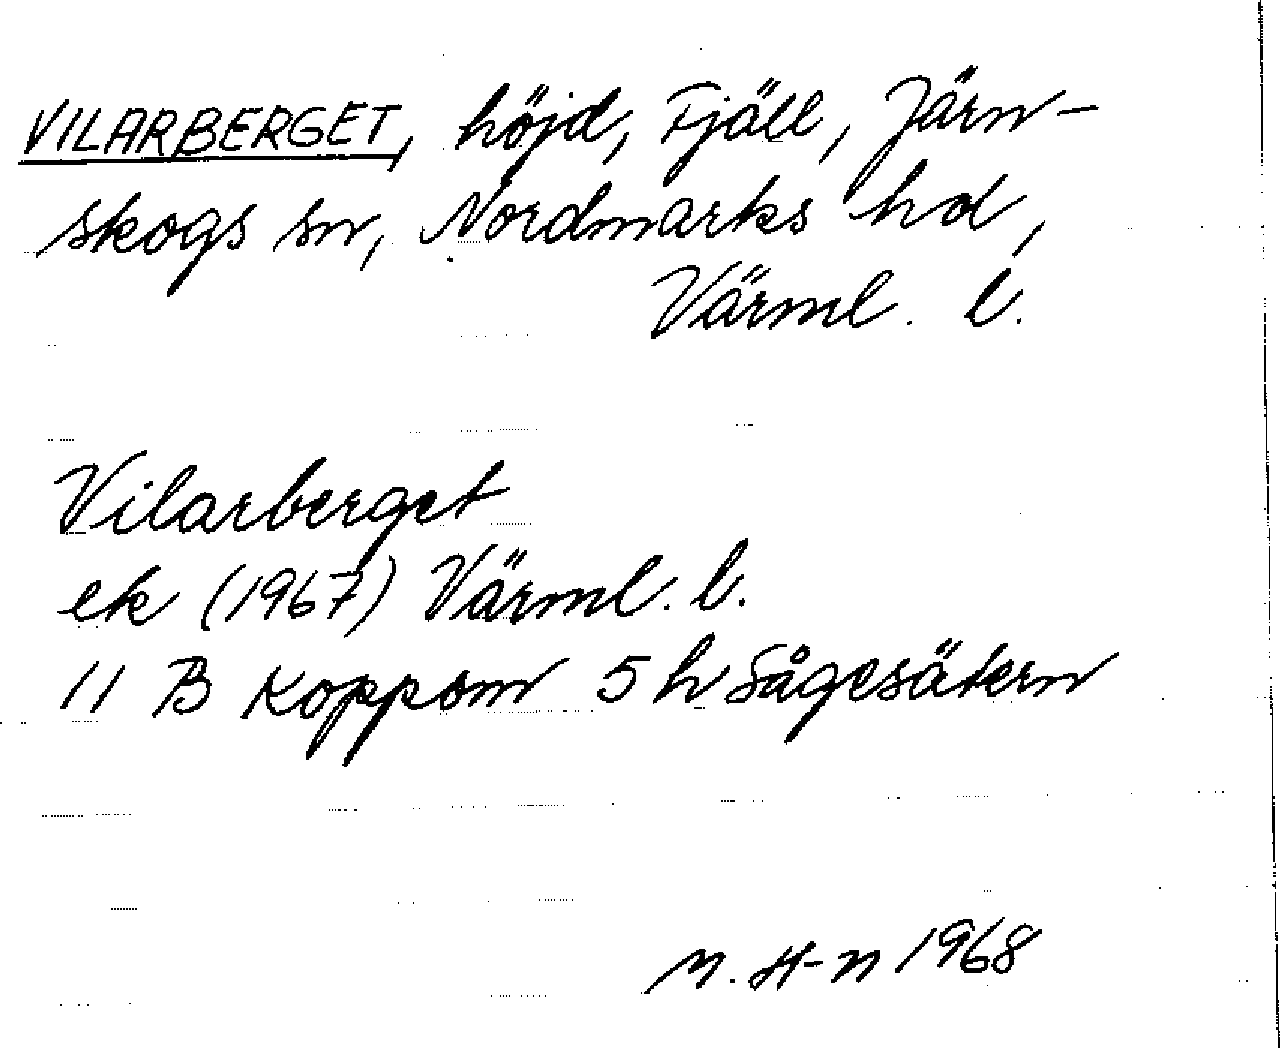 VILARBERGET, höjd, Fjäll, Järn-
skogs sn, Nordmarks hd,
Värml. l.
Vilarberget
ek (1967) Värml. l.
11 B Koppom 5 h Sågesätern
M. H-n 1968